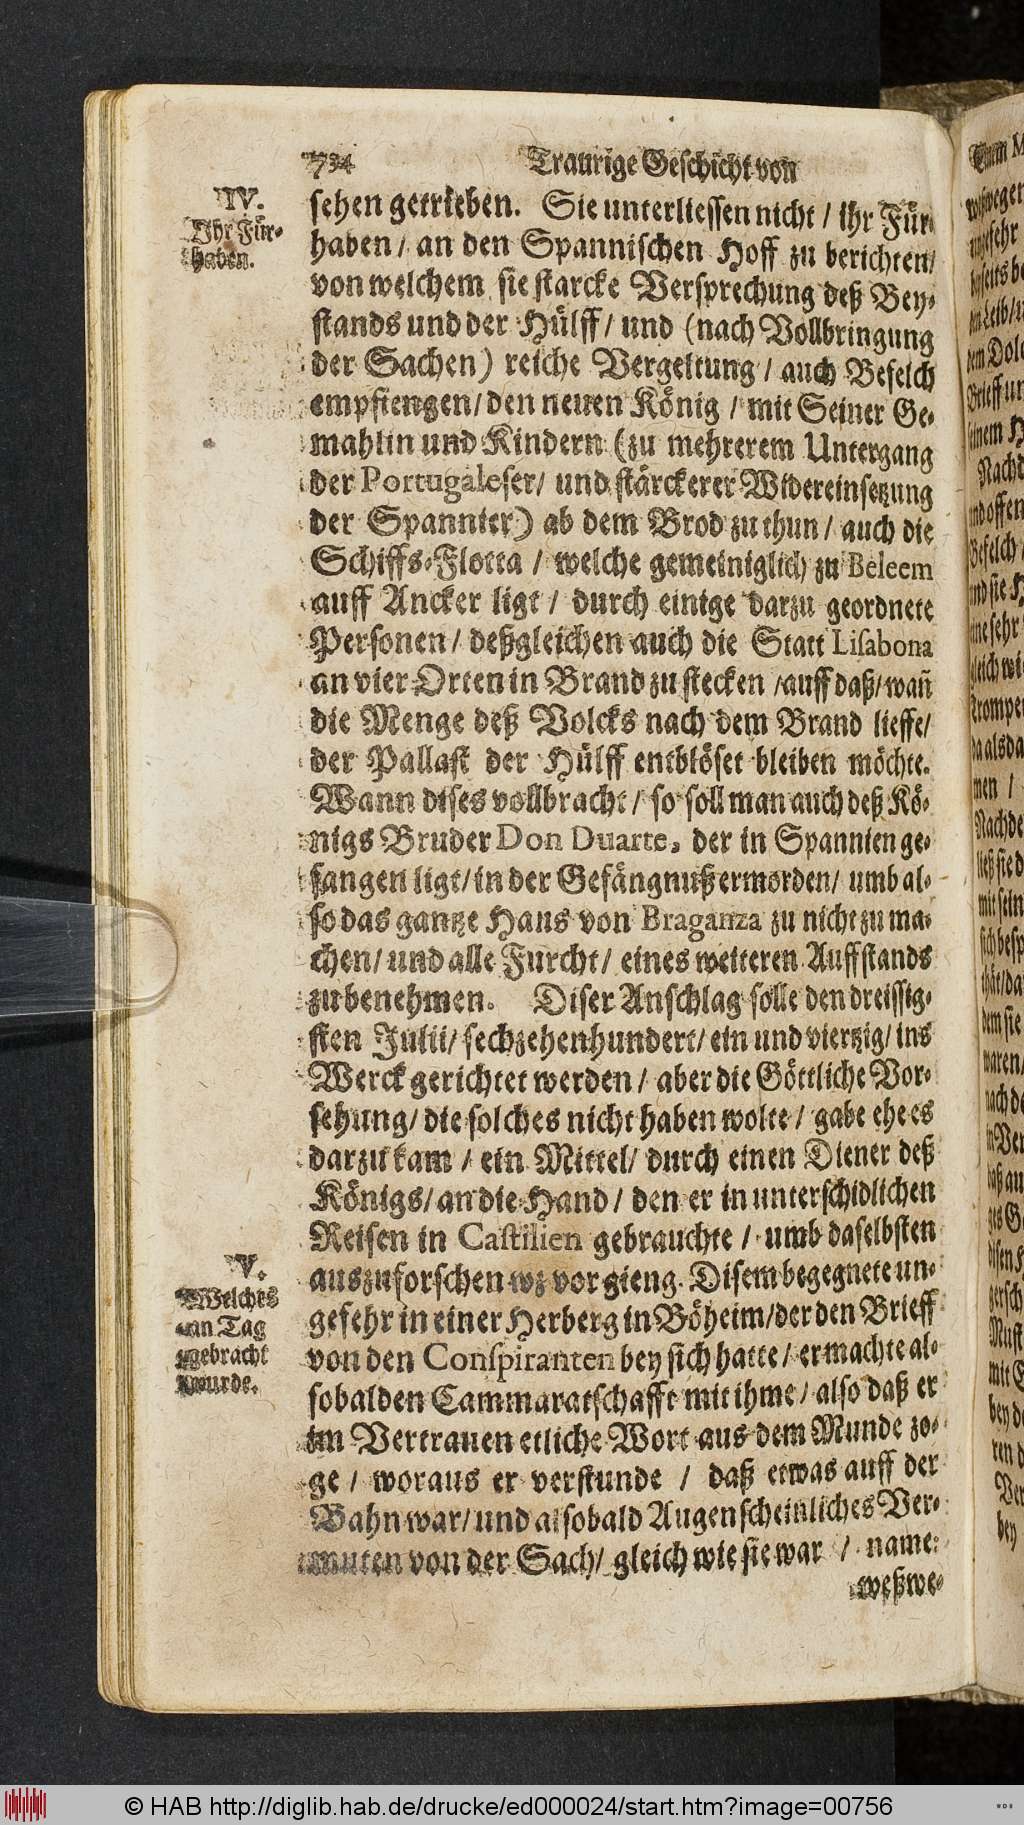 734 Traurige Geschicht von
IV.
Ihr Für-
haben.
sehen getrieben. Sie unterliessen nicht / ihr Für-
haben / an den Spannischen Hoff zu berichten /
von welchem sie starcke Versprechung deß Bey-
stands und der Hülff / und (nach Vollbringung
der Sachen) reiche Vergeltung / auch Befelch
empfiengen / den neuen König / mit Seiner Ge-
mahlin und Kindern (zu mehrerem Untergang
der Portugaleser / und stärckerer Widereinsetzung
der Spannier) ab dem Brod zu thun / auch die
Schiffs-Flotta / welche gemeiniglich zu Beleem
auff Ancker ligt / durch einige darzu geordnete
Personen / deßgleichen auch die Statt Lisabona
an vier Orten in Brand zu stecken / auff daß / wañ
die Menge deß Volcks nach dem Brand lieffe /
der Pallast der Hülff entblöset bleiben möchte.
Wann dises vollbracht / so soll man auch deß Kö-
nigs Bruder Don Duarte, der in Spannien ge-
fangen ligt / in der Gefängnuß ermorden / umb al-
so das gantze Haus von Braganza zu nicht zu ma-
chen / und alle Furcht / eines weiteren Auffstands
zu benehmen. Diser Anschlag solle den dreissig-
sten Julii / sechzehenhundert / ein und viertzig / ins
Werck gerichtet werden / aber die Göttliche Vor-
sehung / die solches nicht haben wolte / gabe ehe es
darzu kam / ein Mittel / durch einen Diener deß
Königs / an die Hand / den er in unterschidlichen
Reisen in Castilien gebrauchte / umb daselbsten
auszuforschen wz vorgieng. Disem begegnete un-
gefehr in einer Herberg in Böheim / der den Brieff
von den Conspiranten bey sich hatte / er machte al-
sobalden Cammaratschafft mit ihme / also daß er
im Vertrauen etliche Wort aus dem Munde zo-
ge / woraus er verstunde / daß etwas auff der
Bahn war / und alsobald Augenscheinliches Ver-
muten von der Sach / gleich wie sie war / name:
weßwe-
V.
Welches
an Tag
gebracht
wurde.
© HAB http://diglib.hab.de/drucke/ed000024/start.htm?image=00756